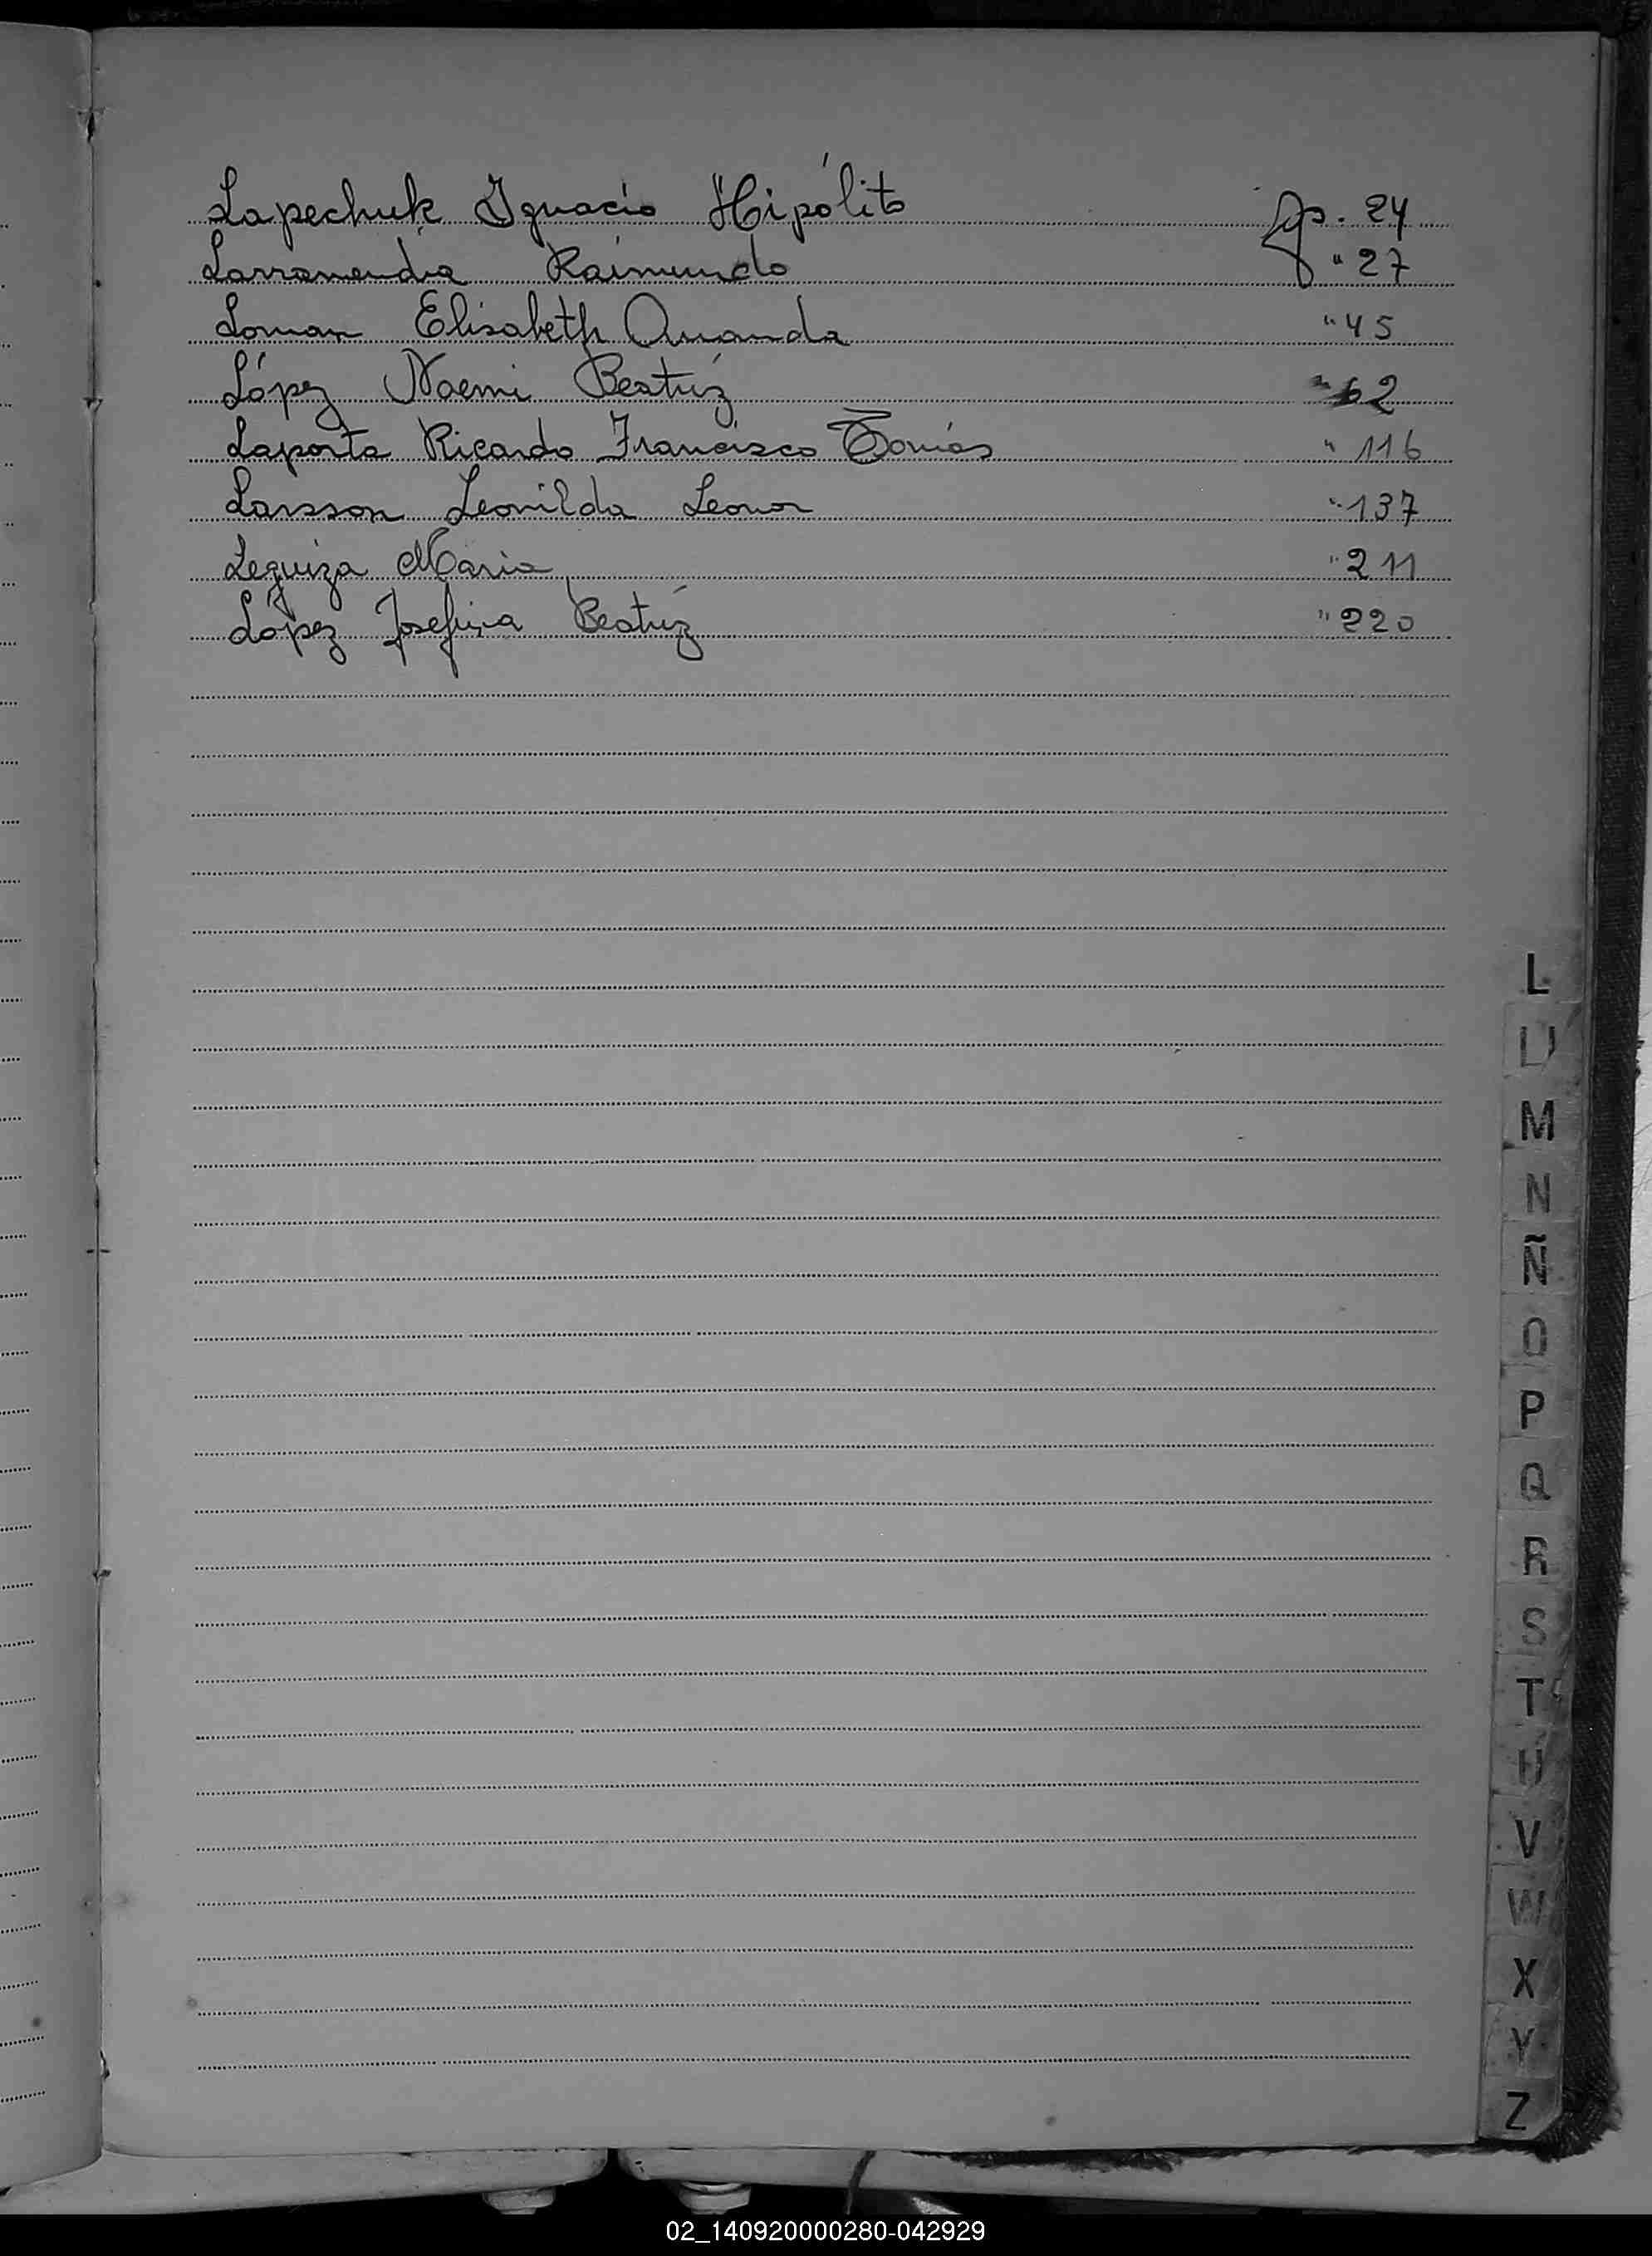 Lapechuk Ignacio Hipólito fjs. 24
Larramendia Raimundo " 27
Loman Elisabeth Amanda " 45
López Noemi Beatríz " 62
Laporta Ricardo Francisco Tomás " 116
Larsson Leonilda Leonor " 137
Leguiza Maria " 211
López Josefina Beatríz " 220
L
M
N
Ñ
O
P
Q
R
S
T
U
V
W
X
Y
Z
02_140920000280-042929